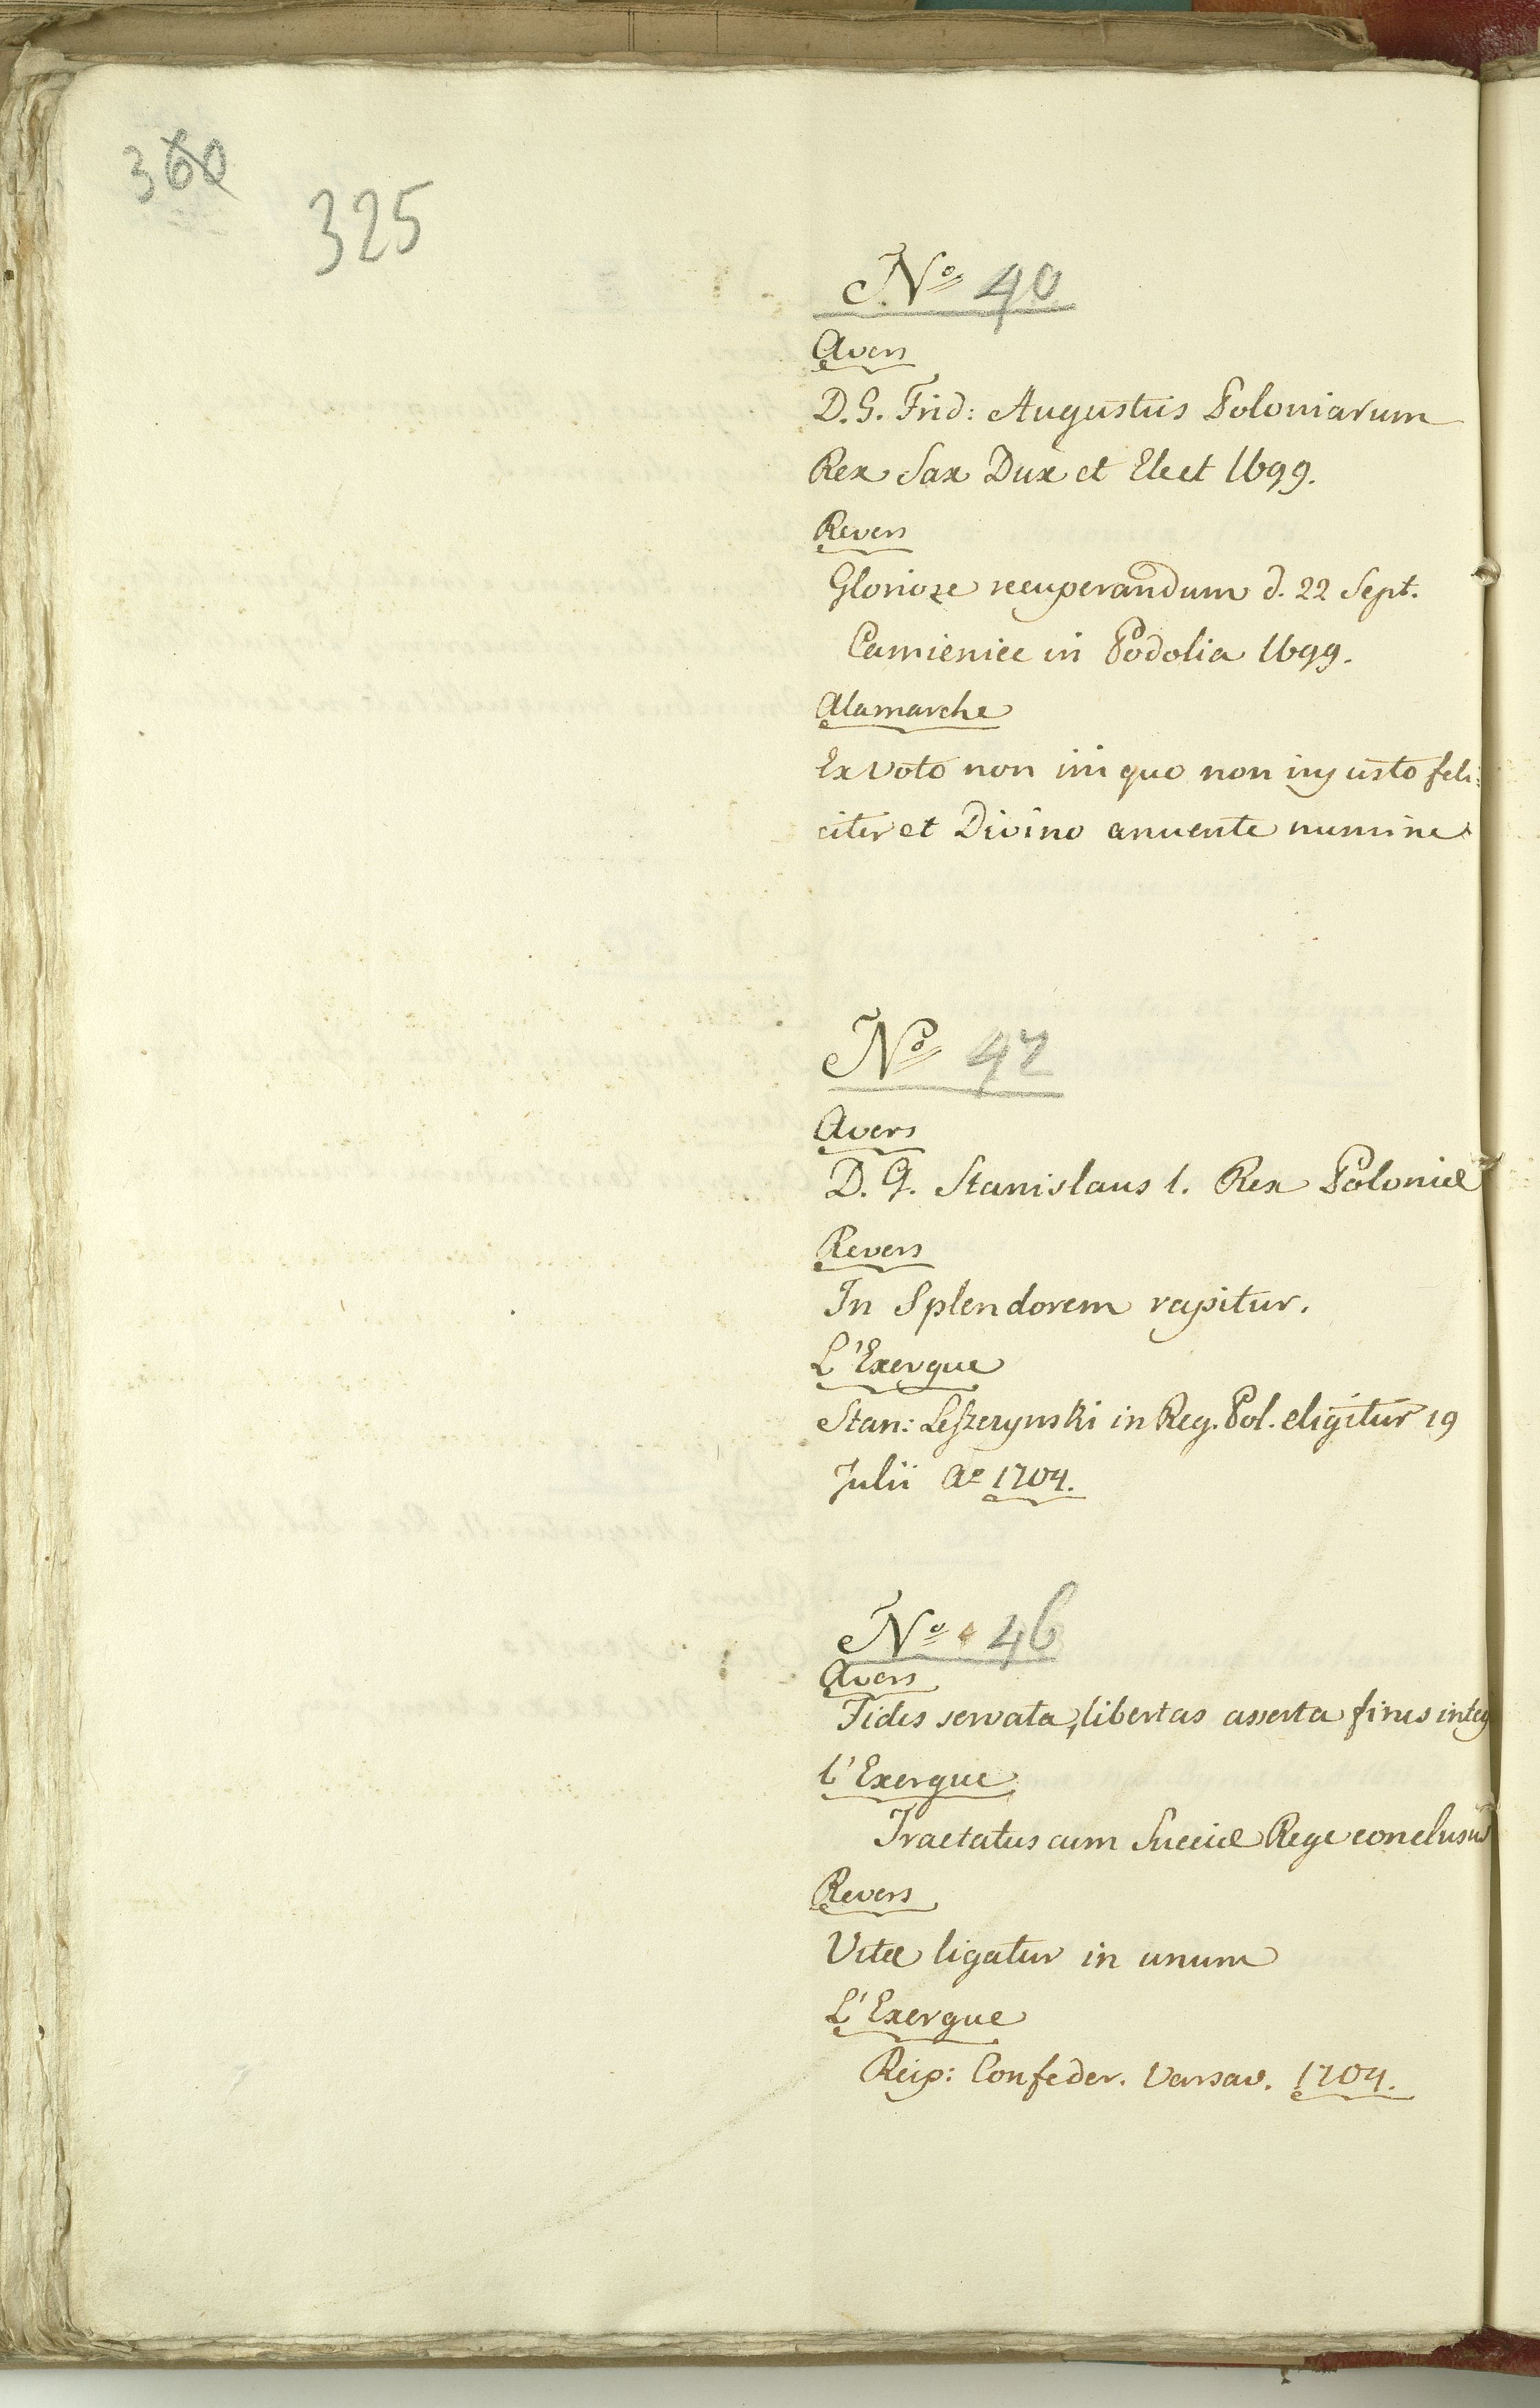 360
325
Nº 40
Avers
D. G. Frid: Augustus Poloniarum
Rex Sax Dux et Elect 1699.
Revers
Glorioze recuperandum d. 22 Sept.
Camieniec in Podolia 1699.
Alamarche
Ex voto non iniquo non injusto feli:
citer et Divino anuente numine
Nº 42
Avers
D. G. Stanislaus 1. Rex Poloniæ
Revers
In Splendorem rapitur.
L'Exergue
Stan: Leszczynski in Reg. Pol. eligitur 19
Julii Aº 1704.
Nº 46
Avers
Fides servata, libertas asserta fines integ
l'Exergue
Tractatus cum Sueciæ Rege conclusus
Revers
Vitæ ligatur in unum
L'Exergue
Reip: Confeder. Varsav. 1704.